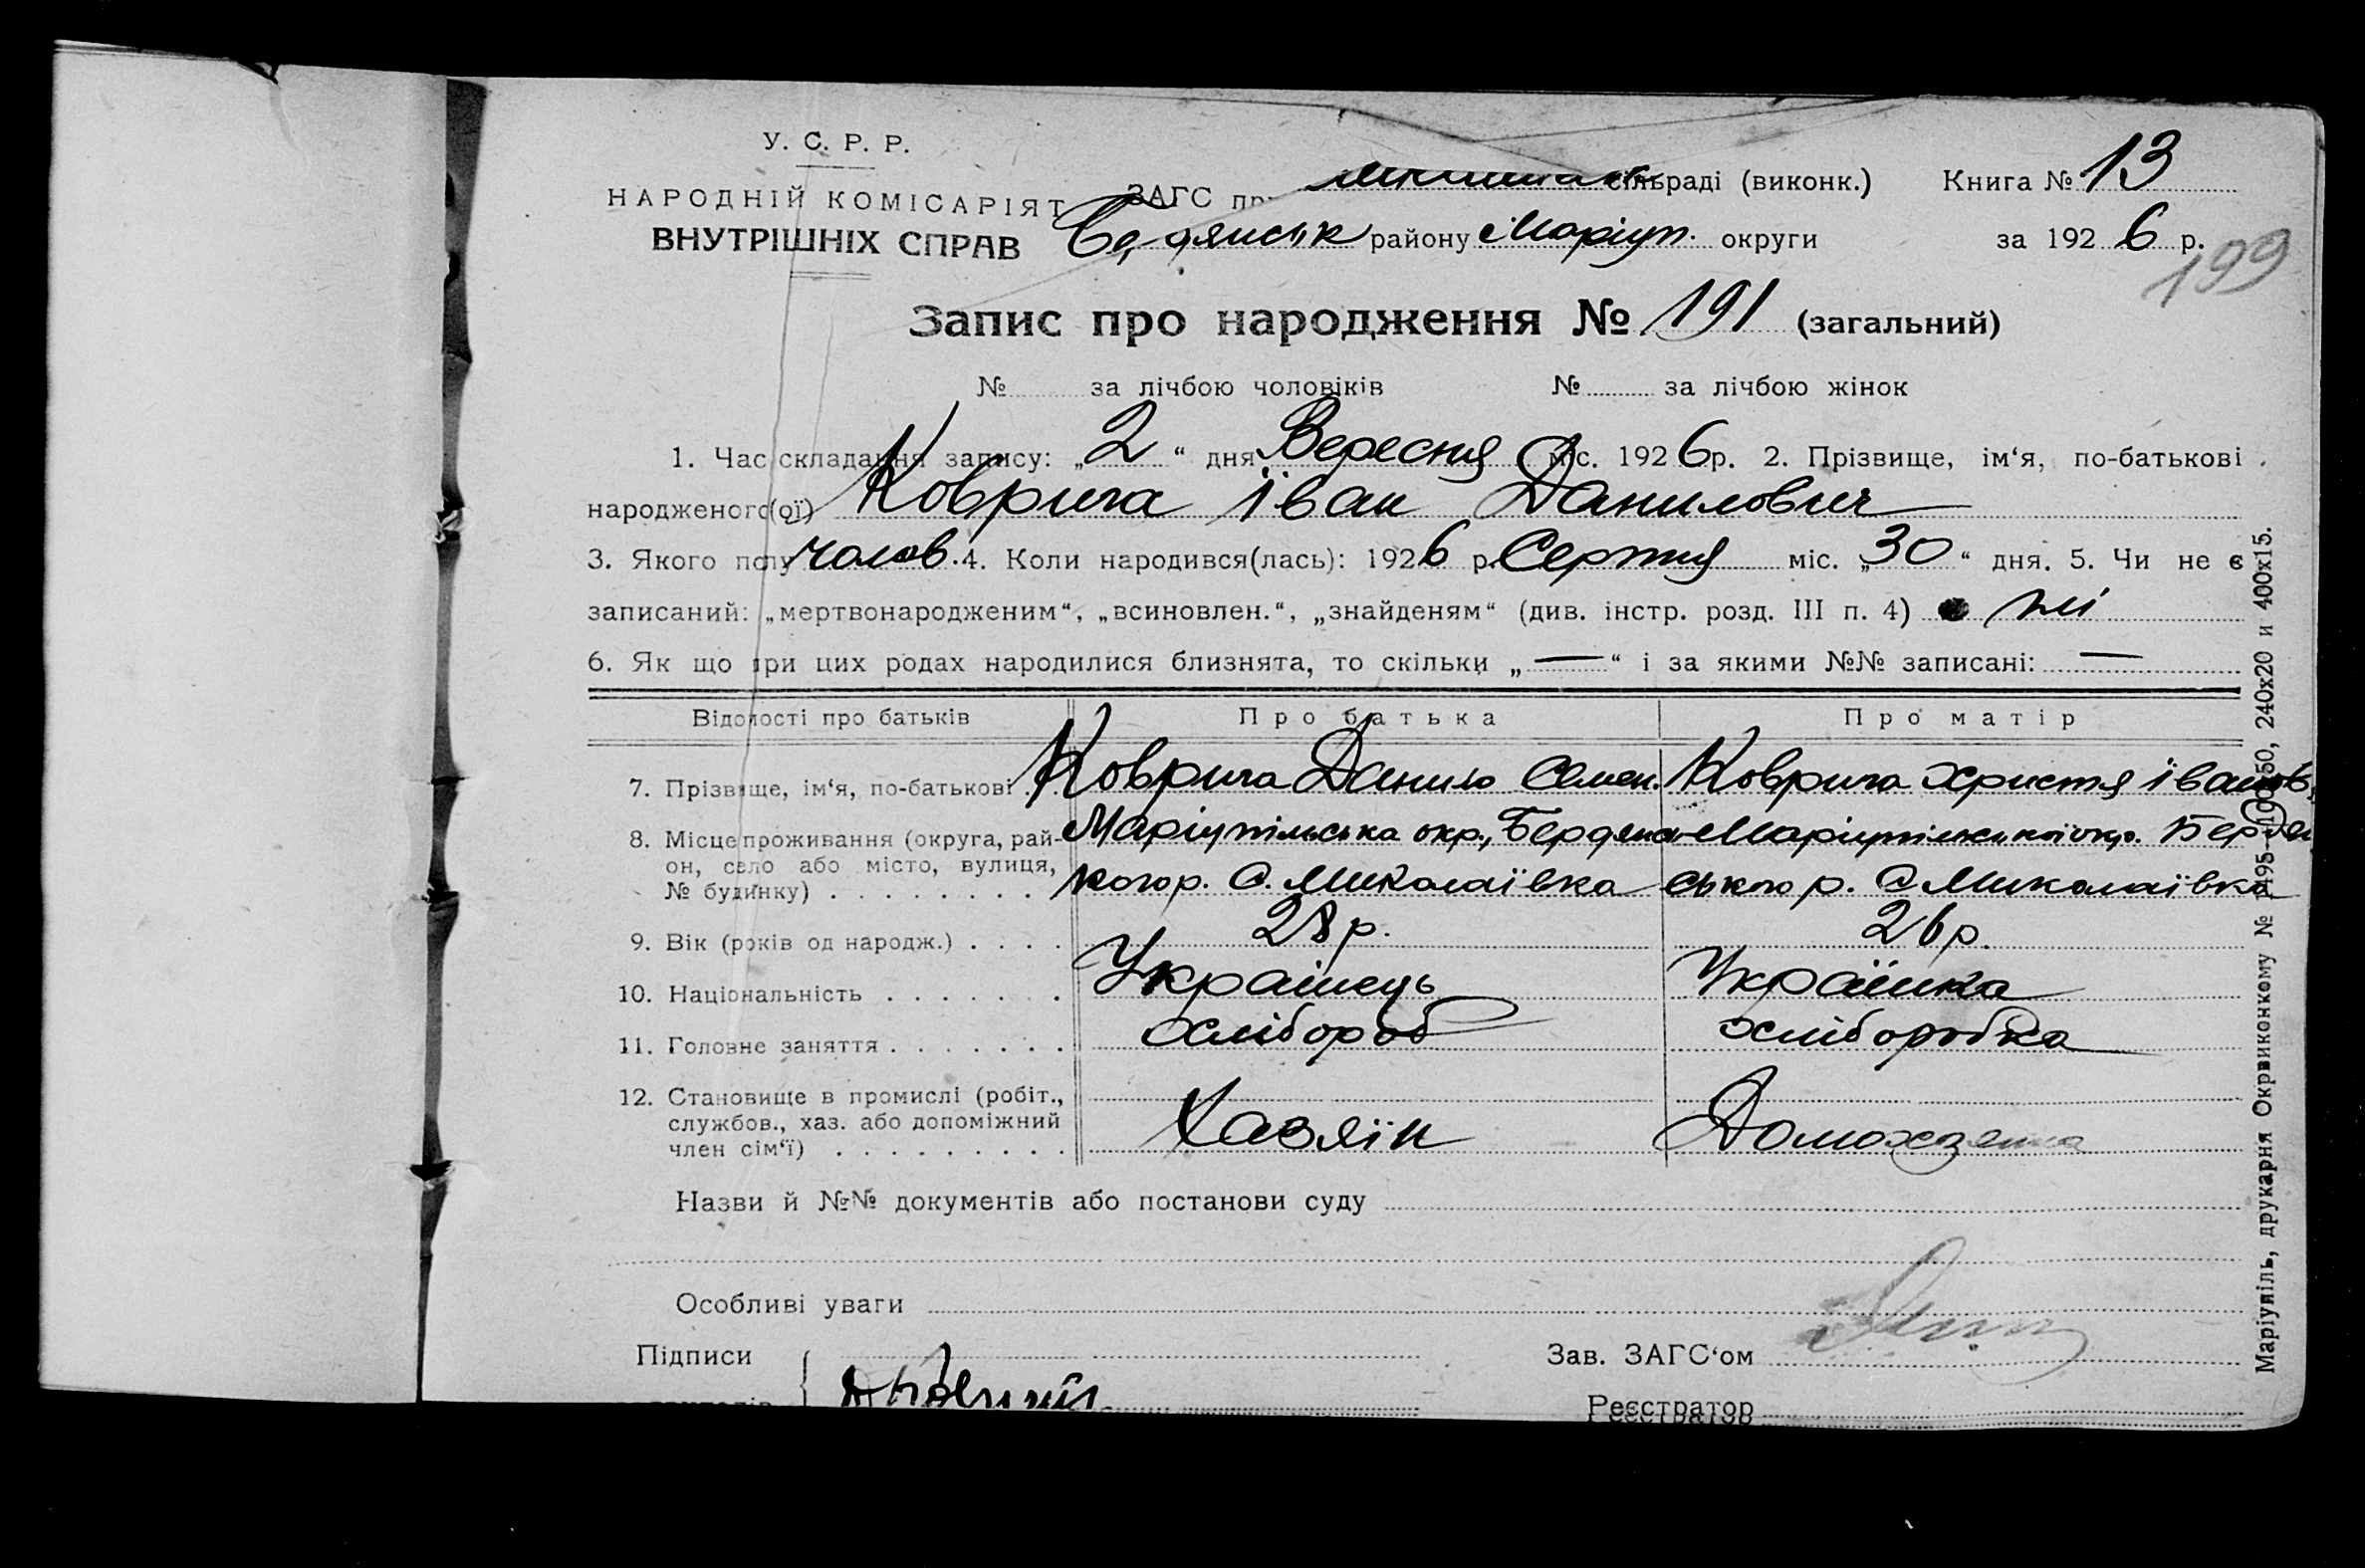 У. С. Р. Р.
НАРОДНІЙ КОМІСАРІЯТ
ВНУТРІШНІХ СПРАВ
ЗАГС пр сільраді (виконк.) Книга № 13
Бердянськ району Маріуп. округи за 1926 р.
199
Запис про народження № 191 (загальний)
№ за лічбою чоловіків № за лічбою жінок
1. Час складання запису: „2“ дня Вересня міс. 1926 р. 2. Прізвище, ім‘я, по-батькові
народженого(ої) Коврига Іван Данилович
3. Якого полу чолов. 4. Коли народився(лась): 1926 р. Серпня міс. „30“ дня. 5. Чи не є
записаний: „мертвонародженим“, „всиновлен.“, „знайденям“ (див. інстр. розд. III п. 4) ні
6. Як що при цих родах народилися близнята, то скільки „—“ і за якими №№ записані: —
Відомості про батьків Про батька Про матір
7. Прізвище, ім‘я, по-батькові Коврига Данило Семен. Коврига Христя Іванов.
8. Місце проживання (округа, рай- Маріупільська окр., Бердянс- Маріупільської окр. Бердян
он, село або місто, вулиця,
№ будинку) кого р. С. Миколаївка ського р. С Миколаївка
9. Вік (років од народж.) 28 р. 26 р.
10. Національність Українець Українка
11. Головне заняття Хлібороб Хліборобка
12. Становище в промислі (робіт.,
службов., хаз. або допоміжний
член сім‘ї) Хазяїн
Назви й №№ документів або постанови суду
Особливі уваги
Підписи Зав. ЗАГС‘ом
Реєстратор
Маріупіль, друкарня Окрвиконкому № 240х20 и 400х15.